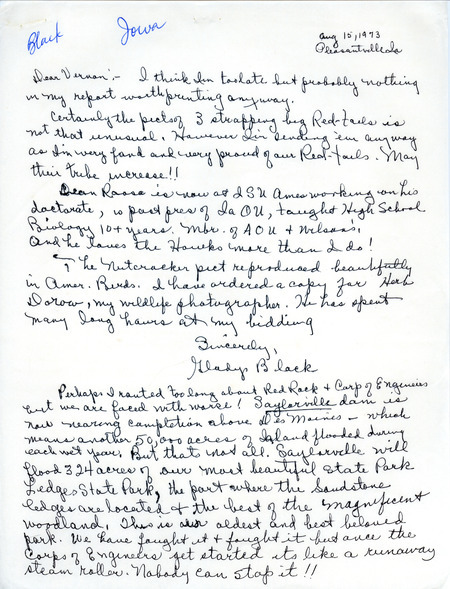 Black Iowa
Aug 15, 1973
Pleasantville Ia
Dear Vernon:- I think I'm too late but probably nothing
in my report worth printing anyway.
Certainly the pic of 3 strapping big Red-tails is
not that unusual. However I'm sending 'em anyway
as I'm very fond and very proud of our Red-tails. May
their tribe increase!!
Dean Roosa is now at ISU Ames working on his
doctorate, is past pres of Ia OU, taught High School
Biology 10+ years. Mbr. of AOU & Wilsons.
And he loves the Hawks more than I do!
The Nutcracker pict reproduced beautifully
in Amer. Birds. I have ordered a copy for Herb
Dorow, my wildlife photographer. He has spent
many long hours at my bidding
Sincerely,
Gladys Black
Perhaps I ranted too long about Red Rock & Corp of Engineers
but we are faced with worse! Saylorville dam is
now nearing completion above Des Moines - which
means another 50,000 acres of land flooded during
each wet year. But that's not all. Saylorville will
flood 324 acres of our most beautiful State Park
Ledges State Park, the part where the Sandstone
ledges are located & the best of the magnificent
woodland. This is our oldest and best beloved
park. We have fought it & fought it but once the
Corps of Engineers get started its like a runaway
steam roller. Nobody can stop it!!